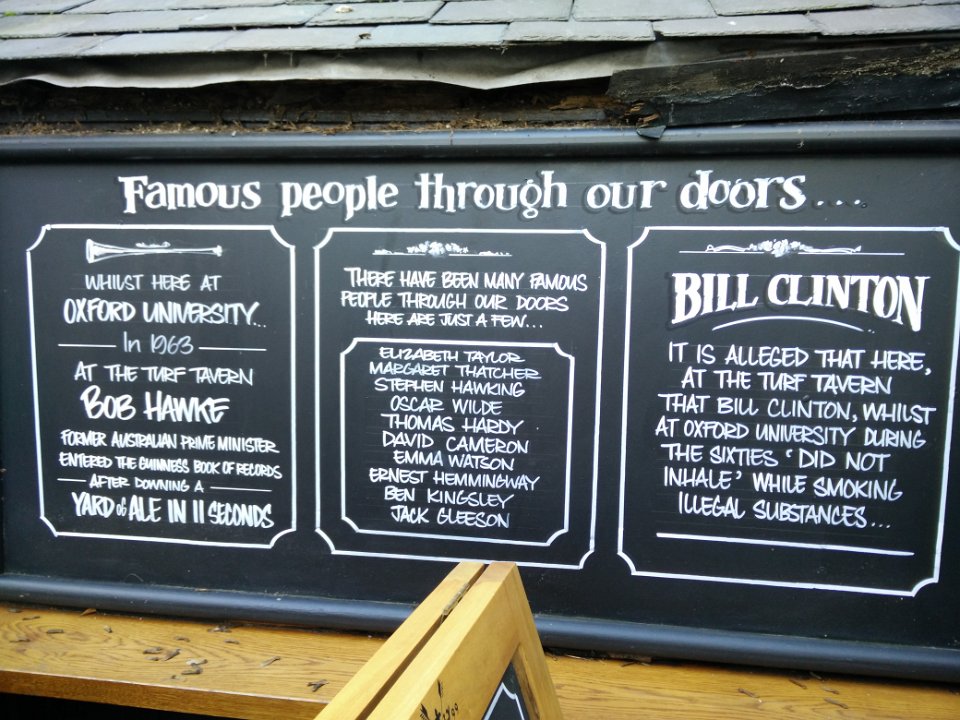 Famous people through our doors....
WHILST HERE AT
OXFORD UNIVERSITY...
In 1963
AT THE TURF TAVERN
BOB HAWKE
FORMER AUSTRALIAN PRIME MINISTER
ENTERED THE GUINNESS BOOK OF RECORDS
AFTER DOWNING A
YARD OF ALE IN 11 SECONDS
THERE HAVE BEEN MANY FAMOUS
PEOPLE THROUGH OUR DOORS
HERE ARE JUST A FEW...
ELIZABETH TAYLOR
MARGARET THATCHER
STEPHEN HAWKING
OSCAR WILDE
THOMAS HARDY
DAVID CAMERON
EMMA WATSON
ERNEST HEMMINGWAY
BEN KINGSLEY
JACK GLEESON
BILL CLINTON
IT IS ALLEGED THAT HERE,
AT THE TURF TAVERN
THAT BILL CLINTON, WHILST
AT OXFORD UNIVERSITY DURING
THE SIXTIES 'DID NOT
INHALE' WHILE SMOKING
ILLEGAL SUBSTANCES...